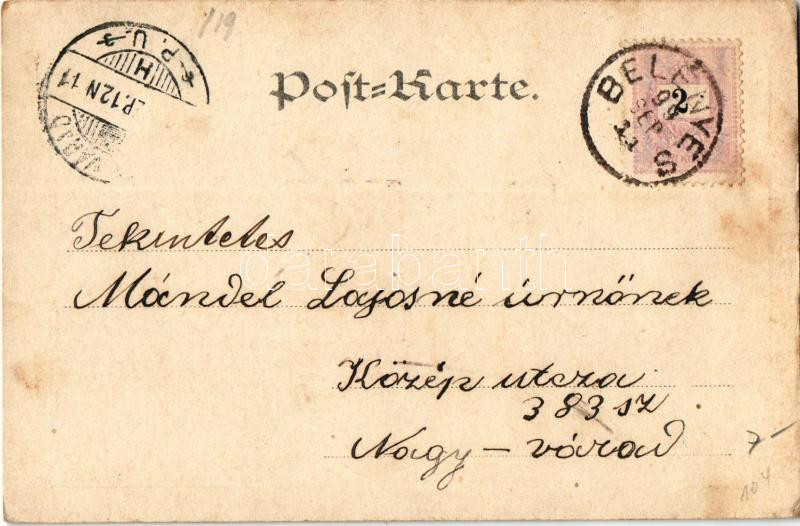 /19
Post-Karte.
P.U.
H
P.12 N 11
VÁRAD
BELÉNYES
99
SEP
11
2
Tekintetes
Mándel Lajosné úrnőnek
Közép utcza
383 sz
Nagy-várad
7-
104
darabanth